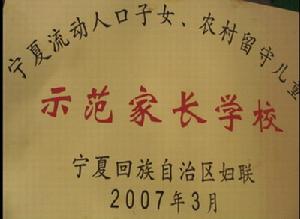 宁夏流动人口子女、农村留守儿童
示范家长学校
宁夏回族自治区妇联
2007年3月